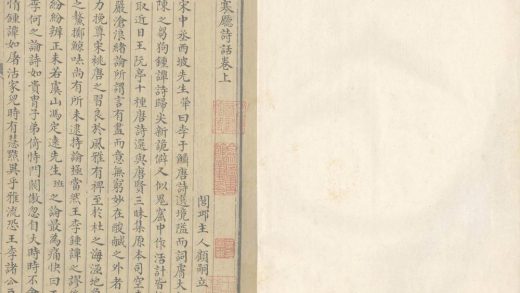 寒廳詩話卷上
閭邱主人顧嗣立
宋中丞西坡先生犖曰李于鱗唐詩選境隘而詞膚大
陳之芻狗鍾譚詩歸尖新詭僻又似鬼窟中作活計皆
取近日王阮亭十種唐詩選與唐賢三昧集原本司空
嚴滄浪緒論所謂言有盡而意無窮妙在酸鹹之外者
力挽尊宋祧唐之習良於風雅有裨至於杜之海涵地
之鰲擲鯨呿尚有所未逮持論極當然王李鍾譚之謬
紛紛辨正未若虞山馮定遠先生班之論最為痛快曰
李何之論詩如貴冑子弟倚恃門閥傲忽自大時時不會
情鍾譚如屠沽家兒時有慧黠異乎雅流恐王李諸公